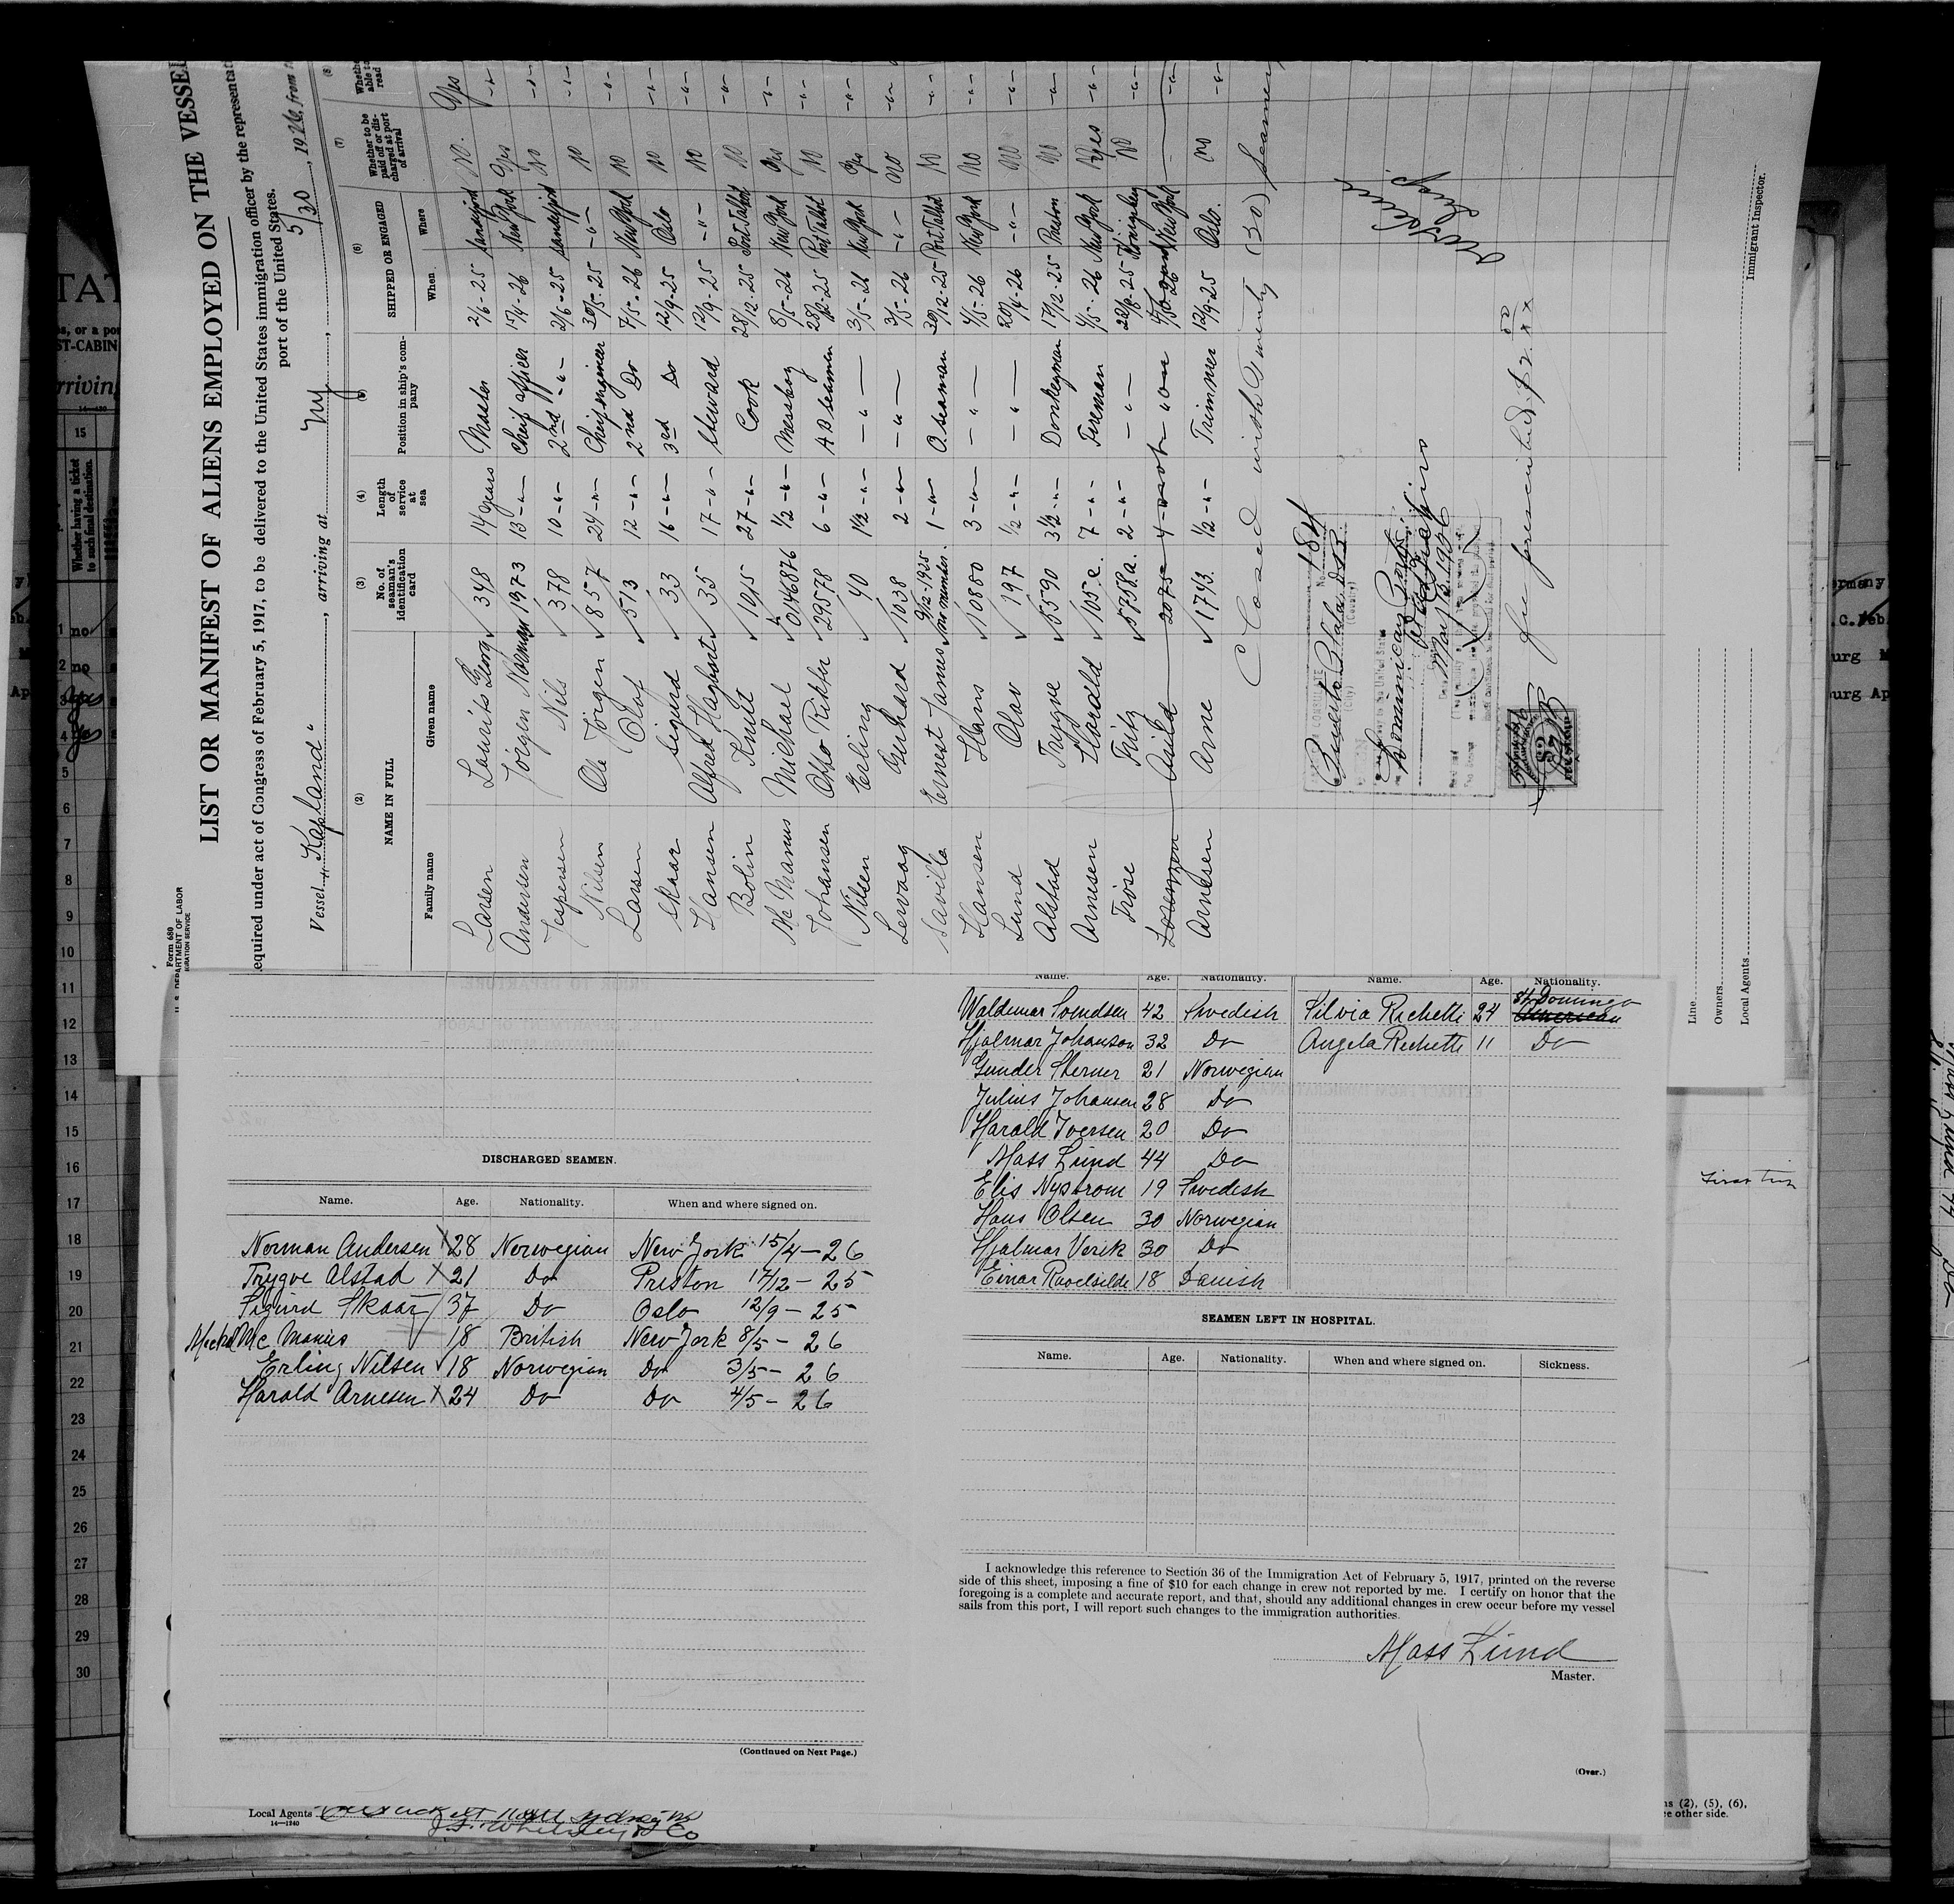 Form 680
U. S. DEPARTMENT OF LABOR
LIST OR MANIFEST OF ALIENS EMPLOYED ON THE VESSEL
required under act of Congress of February 5, 1917, to be delivered to the United States immigration officer by the representat
port of the United States.
Vessel "Kapland", arriving at NY, 5/30, 1926, from
(2) (3) (4) (6) (7) (8)
NAME IN FULL No. of seaman's identification card Length of service at sea Position in ship's company SHIPPED OR ENGAGED Whether to be paid off or discharged at port of arrival Whether able to read
Family name Given name When Where
Larsen Laurits Georg 348 14 years Master 2/6-25 Sandefjord No. Yes
Andersen Jörgen Norman 1973 13 -"- Chief officer 15/4-26 New York Yes -"-
Jespersen Nils 378 10 -"- 2nd -"- 2/6-25 Sandefjord No -"-
Nilsen Ole Jörgen 857 24 -"- Chief engineer 30/5-25 -"- No -"-
Larsen Olof 513 12 -"- 2nd Do 7/5-26 New York No -"-
Skaar Sigurd 33 16 -"- 3rd Do 12/9-25 Oslo No -"-
Hansen Alfred Haghart 35 17 -"- Steward 12/9-25 -"- No -"-
Bolin Knut 1015 27 -"- Cook 28/12-25 Port Talbot No -"-
Mc Manus Michael 0146876 1/2 -"- Messboy 8/5-26 New York Yes -"-
Johansen Otto Richter 29578 6 -"- AB seaman 28/12-25 Port Talbot No -"-
Nilsen Erling 40 1 1/2 -"- -"- 3/5-26 New York Yes -"-
Lervaag Gerhard 1038 2 -"- -"- 3/5-26 -"- No -"-
Saville Ernest James 9/12-1925 no number. 1 -"- O. seaman 30/12-25 Port Talbot No -"-
Hansen Hans 10880 3 -"- -"- 4/5-26 New York No -"-
Lund Olav 197 1/2 -"- -"- 20/4-26 -"- No -"-
Alstad Trygve 5590 3 1/2 -"- Donkeyman 17/12-25 Preston No -"-
Arnesen Harald 105.e. 7 -"- Fireman 4/5-26 New York Yes -"-
Friise Fritz 5758.a. 2 -"- -"- 22/8-25 No -"-
2075 4 New York
Arnesen Arne 1743. 1/2 -"- Trimmer 12/9-25 Oslo. No -"-
Closed with Twenty (20) Seamen
CONSULATE No. 184
Puerto Plata, D.R.
(City) (Country)
Dominican
May 1926
Fee prescribed: $2.00
Immigrant Inspector.
Line
Owners
Local Agents
DISCHARGED SEAMEN.
Name. Age. Nationality. When and where signed on.
Norman Andersen 28 Norwegian New York 15/4-26
Trygve Alstad 21 Do Preston 17/12-25
Sigurd Skaar 37 Do Oslo 12/9-25
Michel Mc Manus 18 British New York 8/5-26
Erling Nilsen 18 Norwegian Do 3/5-26
Harald Arnesen 24 Do Do 4/5-26
(Continued on Next Page.)
Local Agents
14—1240
Name. Age. Nationality. Name. Age. Nationality.
Waldemar Svendsen 42 Swedish Silvia Richetti 24 St. Domingo American
Hjalmar Johanson 32 Do Angela Richetti 11 Do
Gunder Sterner 21 Norwegian
Julius Johansen 28 Do
Harald Iversen 20 Do
Mass Lund 44 Do
Elis Nystrom 19 Swedish
Hans Olsen 30 Norwegian
Hjalmar Verik 30 Do
Einar 18 Danish
SEAMEN LEFT IN HOSPITAL.
Name. Age. Nationality. When and where signed on. Sickness.
I acknowledge this reference to Section 36 of the Immigration Act of February 5, 1917, printed on the reverse
side of this sheet, imposing a fine of $10 for each change in crew not reported by me. I certify on honor that the
foregoing is a complete and accurate report, and that, should any additional changes in crew occur before my vessel
sails from this port, I will report such changes to the immigration authorities.
Mass Lund
Master.
(Over.)
First trip
ns (2), (5), (6),
e other side.
15
Whether having a ticket to such final destination.
1 no
2 no
3 yes
4
5
6
7
8
9
10
11
12
13
14
15
16
17
18
19
20
21
22
23
24
25
26
27
28
29
30